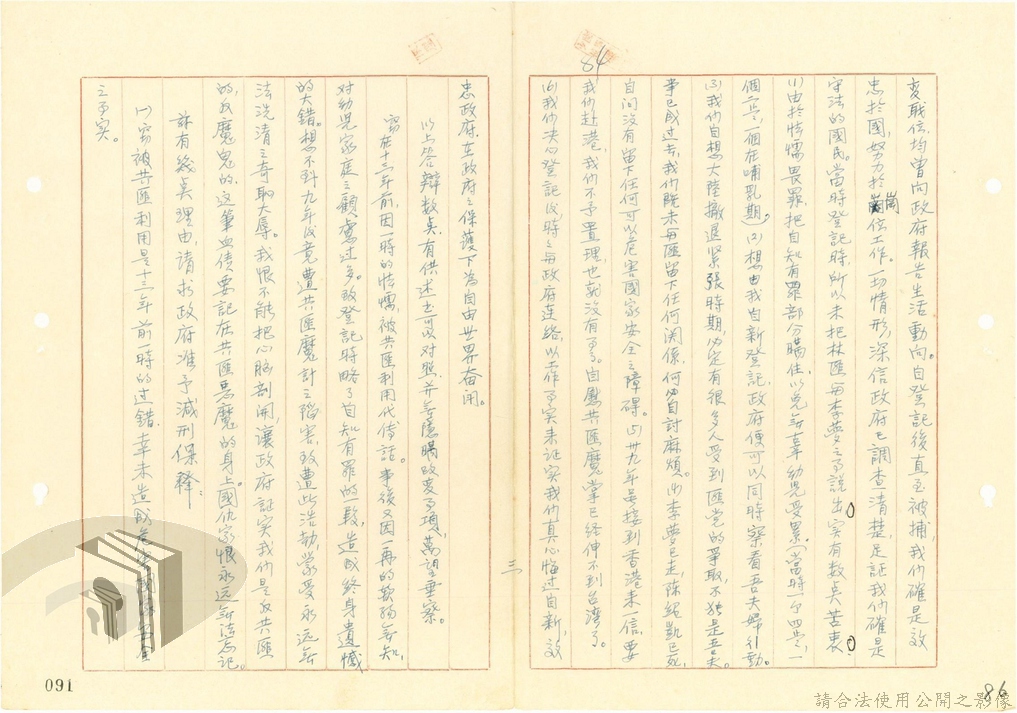 84
变戢位,均曾向政府報告生活動向。自登記後直至被捕,我俩確是效
忠於國,努力於崗位工作。一切情形,深信政府已調查清楚,足証我俩確是
守法的國民。當時登記時,所以未把林匪每李夢之事說出,实有数点苦衷:
(1)由於怯懦畏罪把自知有罪部分瞞住以免無辜幼兒受累。(當時一个四岁,一
個二岁,一個在哺乳期)。(2)想由我自新登記,政府便可以同時察看吾夫婦行動。
(3)我俩自想大陸撤退緊張時期,必定有很多人受到匪党的爭取,不独是吾夫。
事已成过去,我俩既未每匪留下任何関係,何必自討麻煩。(4)李夢已走,陳綎凱已死,
自问没有留下任何可以危害國家安全之障碍。(5)卅九年每接到香港来一信,要
我俩赴港,我俩不予置理,也就没有事了。自慮共匪魔掌已經伸不到台湾了。
(6)我俩决心登記後,時々每政府連絡,以工作事实来証实我俩真心悔过自新,效
忠政府,在政府之保護下為自由世界奋闘。
以上答辯数点,有供述書可以对照,并無隱瞒改变事項,萬望垂察。
窃在十三年前,因一時的怯懦,被共匪利用代傳話。事後又因一再的軟弱無知,
对幼兒家庭之顧慮过多。致登記時略了自知有罪的一段,造成終身遺憾
的大錯。想不到九年後竟遭共匪魔計之陷害,致遭此浩劫,蒙受永远無
法洗清之奇恥大辱。我恨不能把心胸剖開讓政府証实我俩是反共匪
的,反魔鬼的。这筆血债要記在共匪惡魔的身上。國仇家恨永远無法忘記。
兹有幾点理由,請求政府准予減刑保釋:
(一)窃被共匪利用是十三年前一時的过錯,幸未造成危害國家安全
之事实。
三
091
86
請合法使用公開之影像